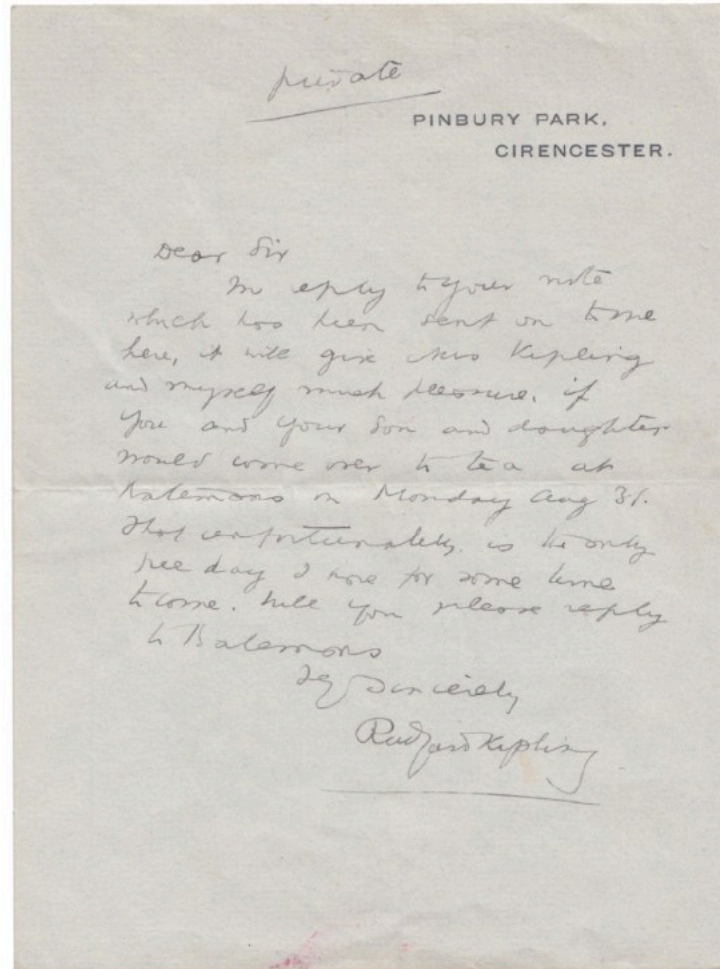 private
PINBURY PARK,
CIRENCESTER.
Dear Sir
In reply to your note
which has been sent on to me
here, it will give Mrs Kipling
and myself much pleasure, if
you and your son and daughter
would come over to tea at
Batemans on Monday Aug 31.
That unfortunately is the only
free day I have for some time
to come. Will you please reply
to Batemans
Sincerely
Rudyard Kipling